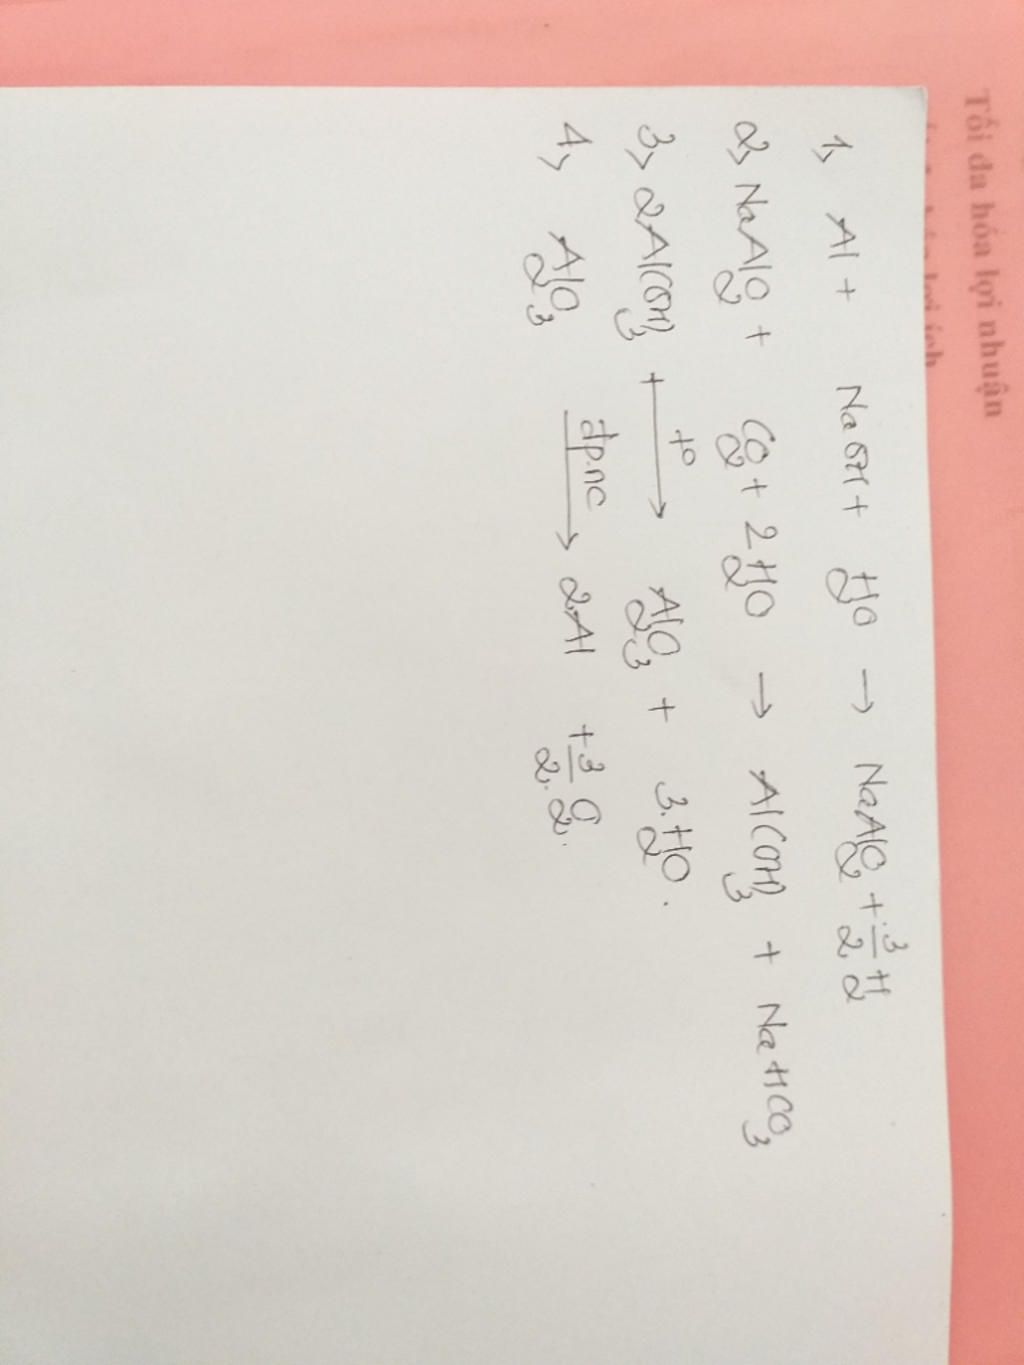 Tối đa hóa lợi nhuận
1, Al + NaOH + H2O → NaAlO2 + 3/2 H2
2, NaAlO2 + CO2 + 2H2O → Al(OH)3 + NaHCO3
3, 2Al(OH)3 + t° → Al2O3 + 3.H2O.
4, Al2O3 đp.nc → 2Al + 3/2. O2.